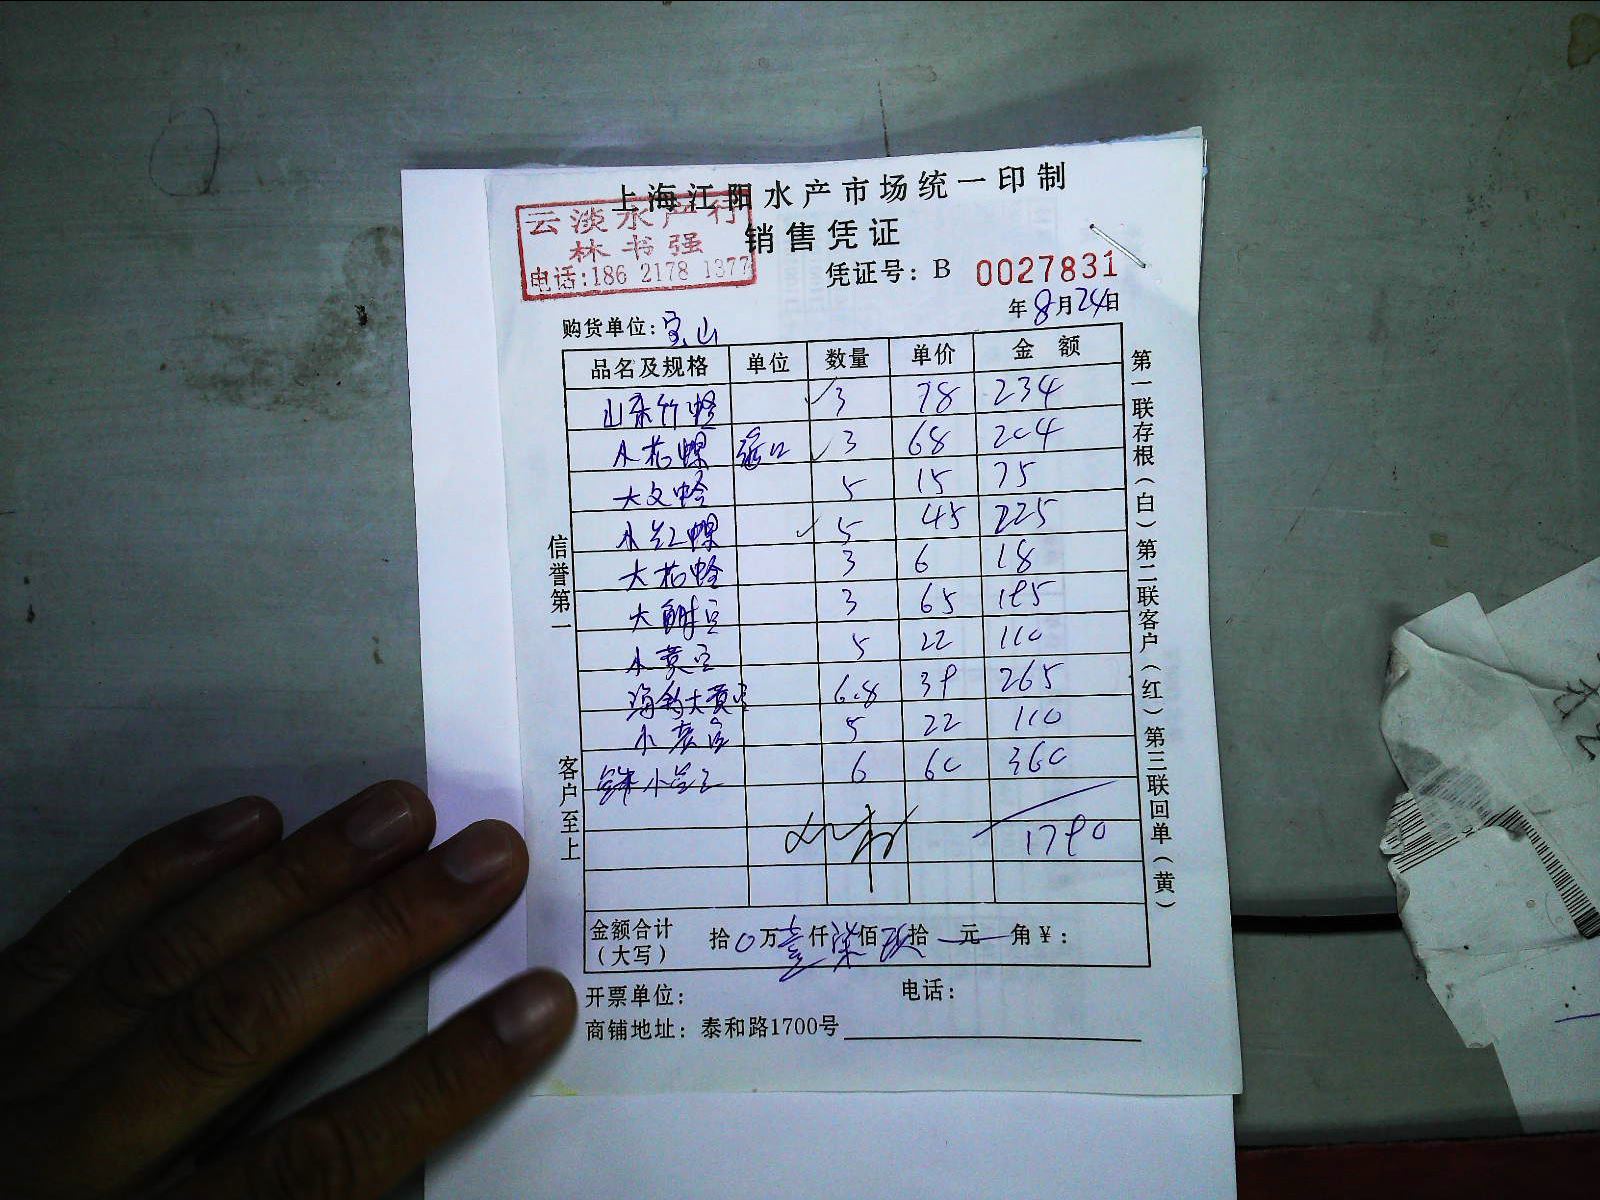 上海江阳水产市场统一印制
云淡水产行
林书强
电话:186 2178 1377
销售凭证
凭证号: B 0027831
年8月24日
购货单位: 宝山
品名及规格 单位 数量 单价 金额
山东竹蛏 3 78 234
小花螺 3 68 204
大文蛤 5 15 75
小红螺 5 45 225
大花蛤 3 6 18
大 3 65 195
小黄 5 22 110
海 大黄 6.8 39 265
小 5 22 110
小 6 60 360
1790
金额合计 拾0万壹仟柒佰玖拾 元 角¥:
(大写)
开票单位: 电话:
商铺地址: 泰和路1700号
信誉第一
客户至上
第一联存根(白)第二联客户(红)第三联回单(黄)